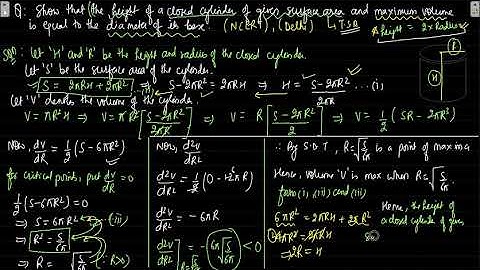 Q: Show that the height of a closed cylinder of given surface area and maximum volume
is equal to the diameter of its base. (NCERT, Delhi) ↳ T.S.R
* Height = 2 x Radius
r
H
Solⁿ: Let 'H' and 'R' be the height and radius of the closed cylinder.
Let 'S' be the surface area of the cylinder.
S = 2πRH + 2πR² ⇒ S-2πR² = 2πRH ⇒ H = (S-2πR²)/(2πR) ...(i)
Let 'V' denotes the volume of the cylinder.
V = πR²H ⇒ V = πR² [(S-2πR²)/(2πR)] ⇒ V = R [(S-2πR²)/2] ⇒ V = 1/2 (SR - 2πR³)
Now, dV/dR = 1/2 (S-6πR²)
for critical points, put dV/dR = 0
1/2 (S-6πR²) = 0
⇒ S = 6πR² ...(iii)
⇒ R² = S/6π
⇒ R = √(S/6π) (∵ R>0)
Now, d²V/dR²
d²V/dR² = 1/2 (0-12πR)
d²V/dR² = -6πR
d²V/dR²]R=√(S/6π) = -6π√(S/6π) < 0
∴ By S.D.T, R=√(S/6π) is a point of maxima
Hence, volume 'V' is max when R=√(S/6π)
from (i), (ii) and (iii)
6πR² = 2πRH + 2πR²
4πR² = 2πRH
⇒ 2R = H
Hence, the height of
a closed cylinder of given